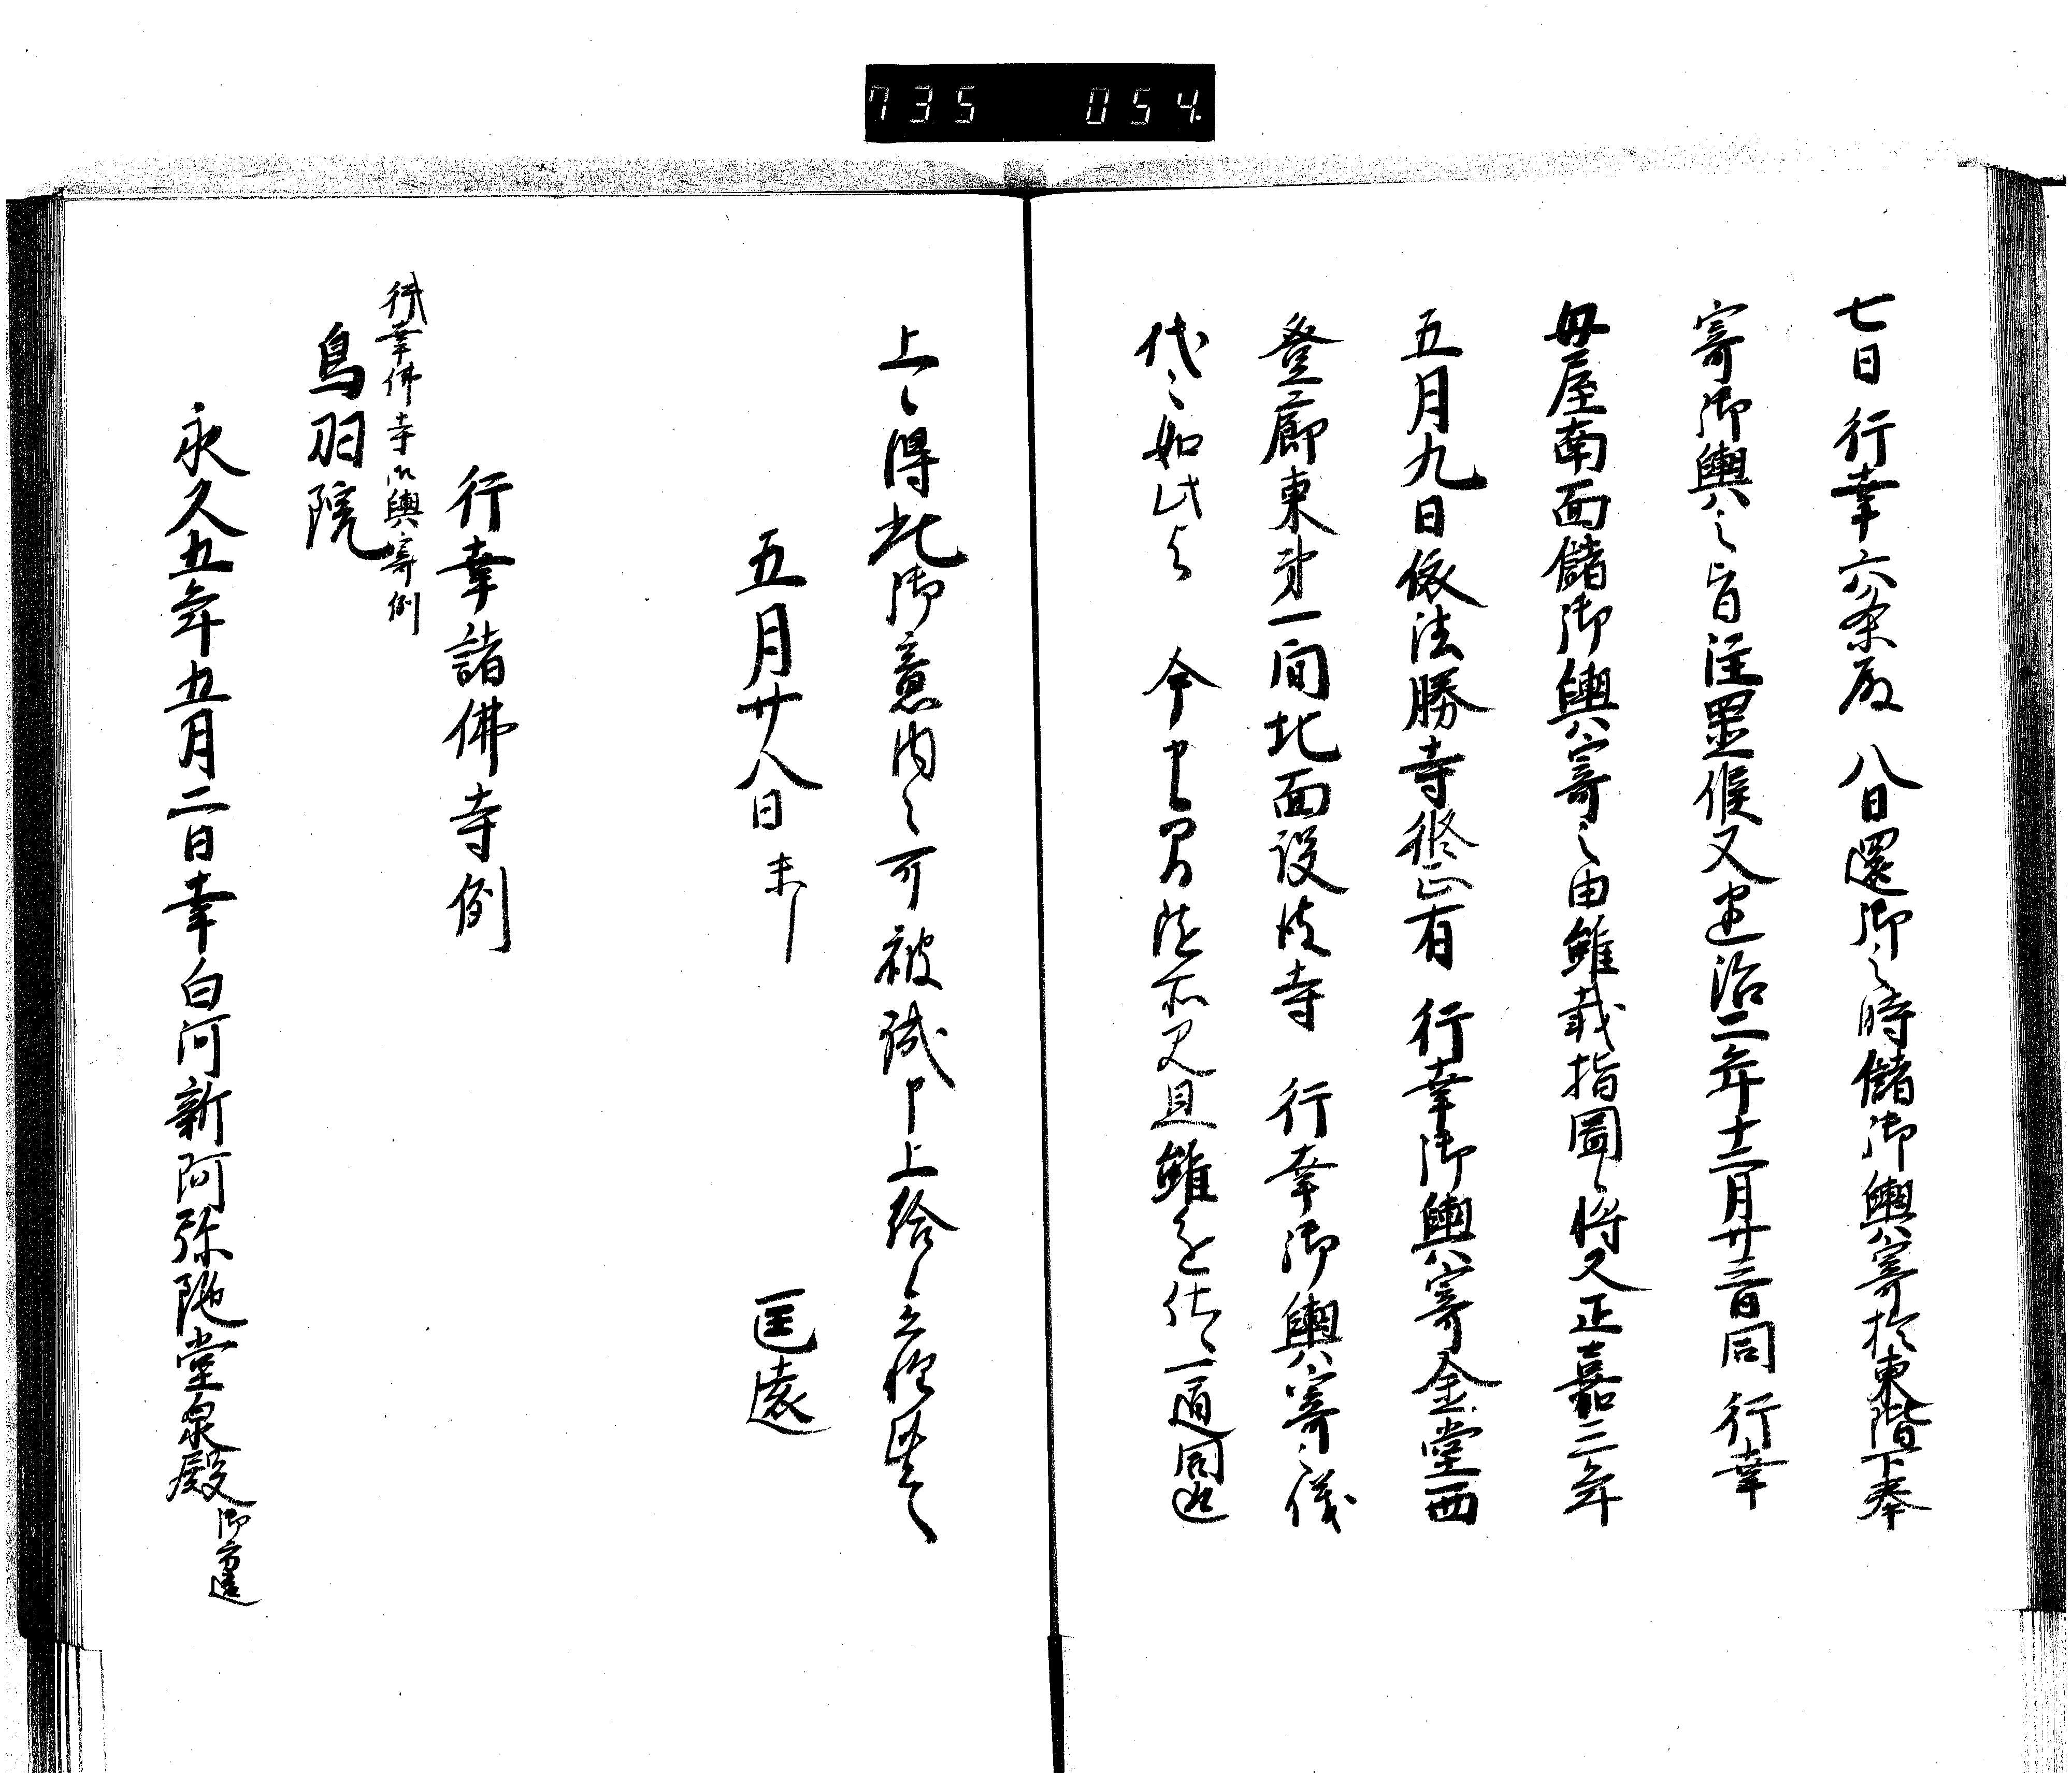 735 054.
七日 行幸六条殿 八日還御之時儲御輿寄於東階下奉
寄御輿之旨注置候又建治二年十二月廿三日同 行幸
母屋南面儲御輿寄之由雖載指図候将又正嘉二年
五月九日依法勝寺修正有 行幸御輿寄金堂西
登廊東第一間北面設彼寺 行幸御輿寄之儀
代々如此 今 所見且雖 一通同進
上候得此御意内々可被誠申上給候
五月廿八日 匡遠
行幸諸佛寺例
行幸佛寺御輿寄例
鳥羽院
永久五年五月二日幸白河新阿弥陀堂泉殿御方違